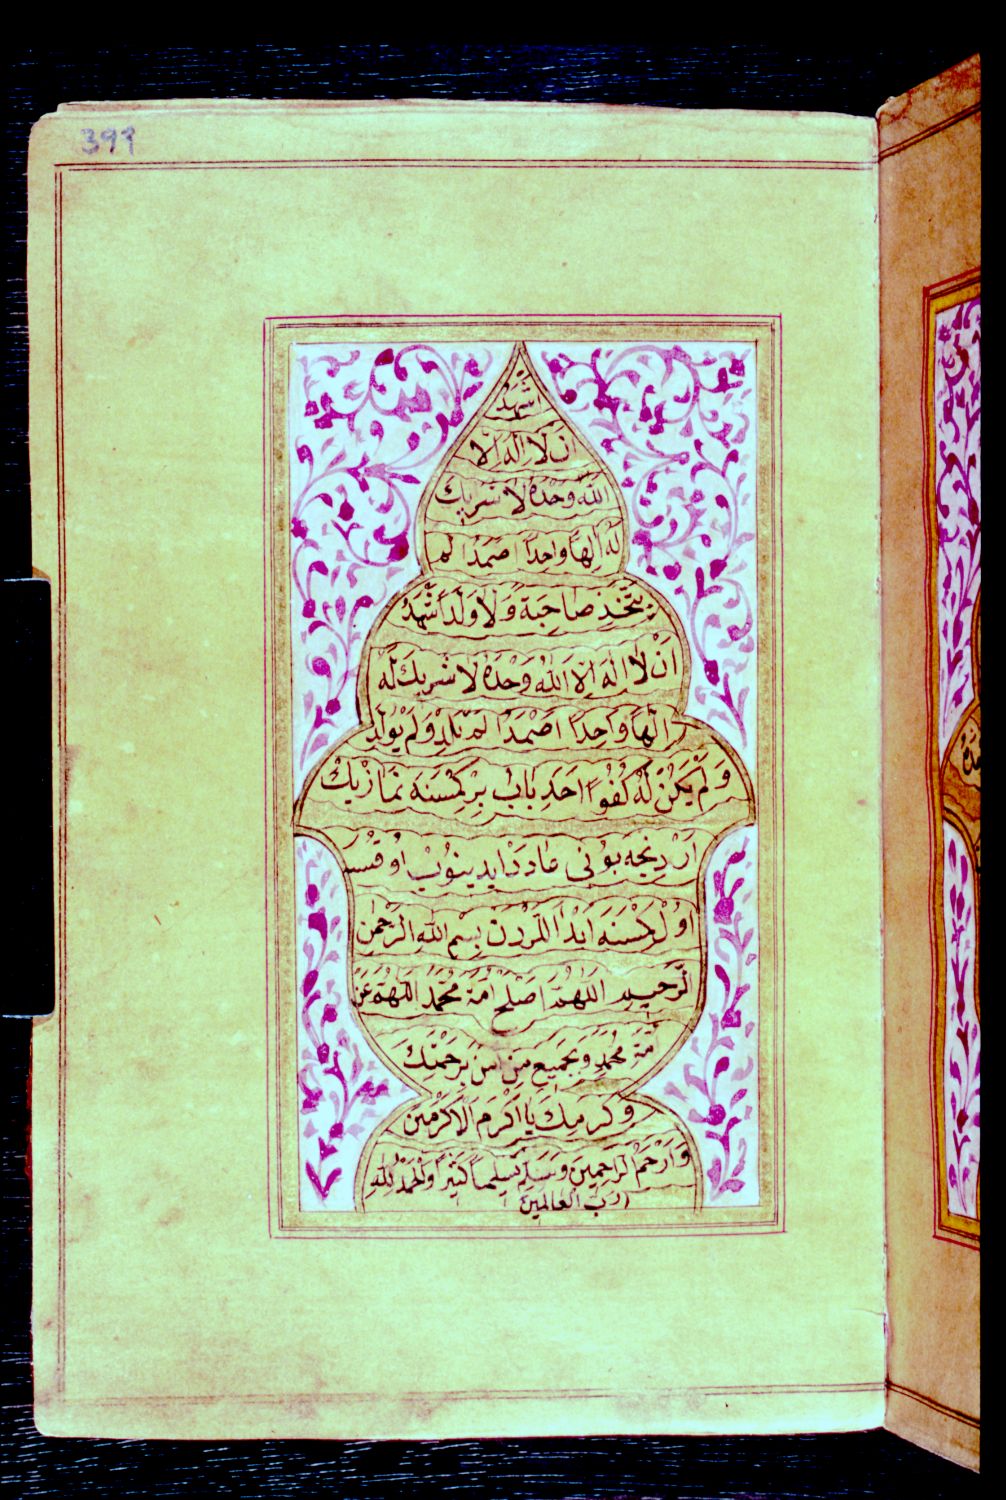 399
اشهد
ان لا اله الا
الله وحده لا شريك
له الها واحدا صمدا لم
يتخذ صاحبة ولا ولدا اشهد
ان لا اله الا الله وحده لا شريك له
الها واحدا صمدا لم يلد ولم يولد
ولم يكن له كفوا احد باب بر كمسنه نمازيك
اردنجه بو نى
اول كمسنه ابدا بسم الله الرحمن
الرحيم اللهم اصلح امة محمد اللهم
امة محمد وبجميع من برحمتك
وكرمك يا اكرم الاكرمين
وارحم الراحمين وسلم تسليما كثيرا والحمد لله
رب العالمين